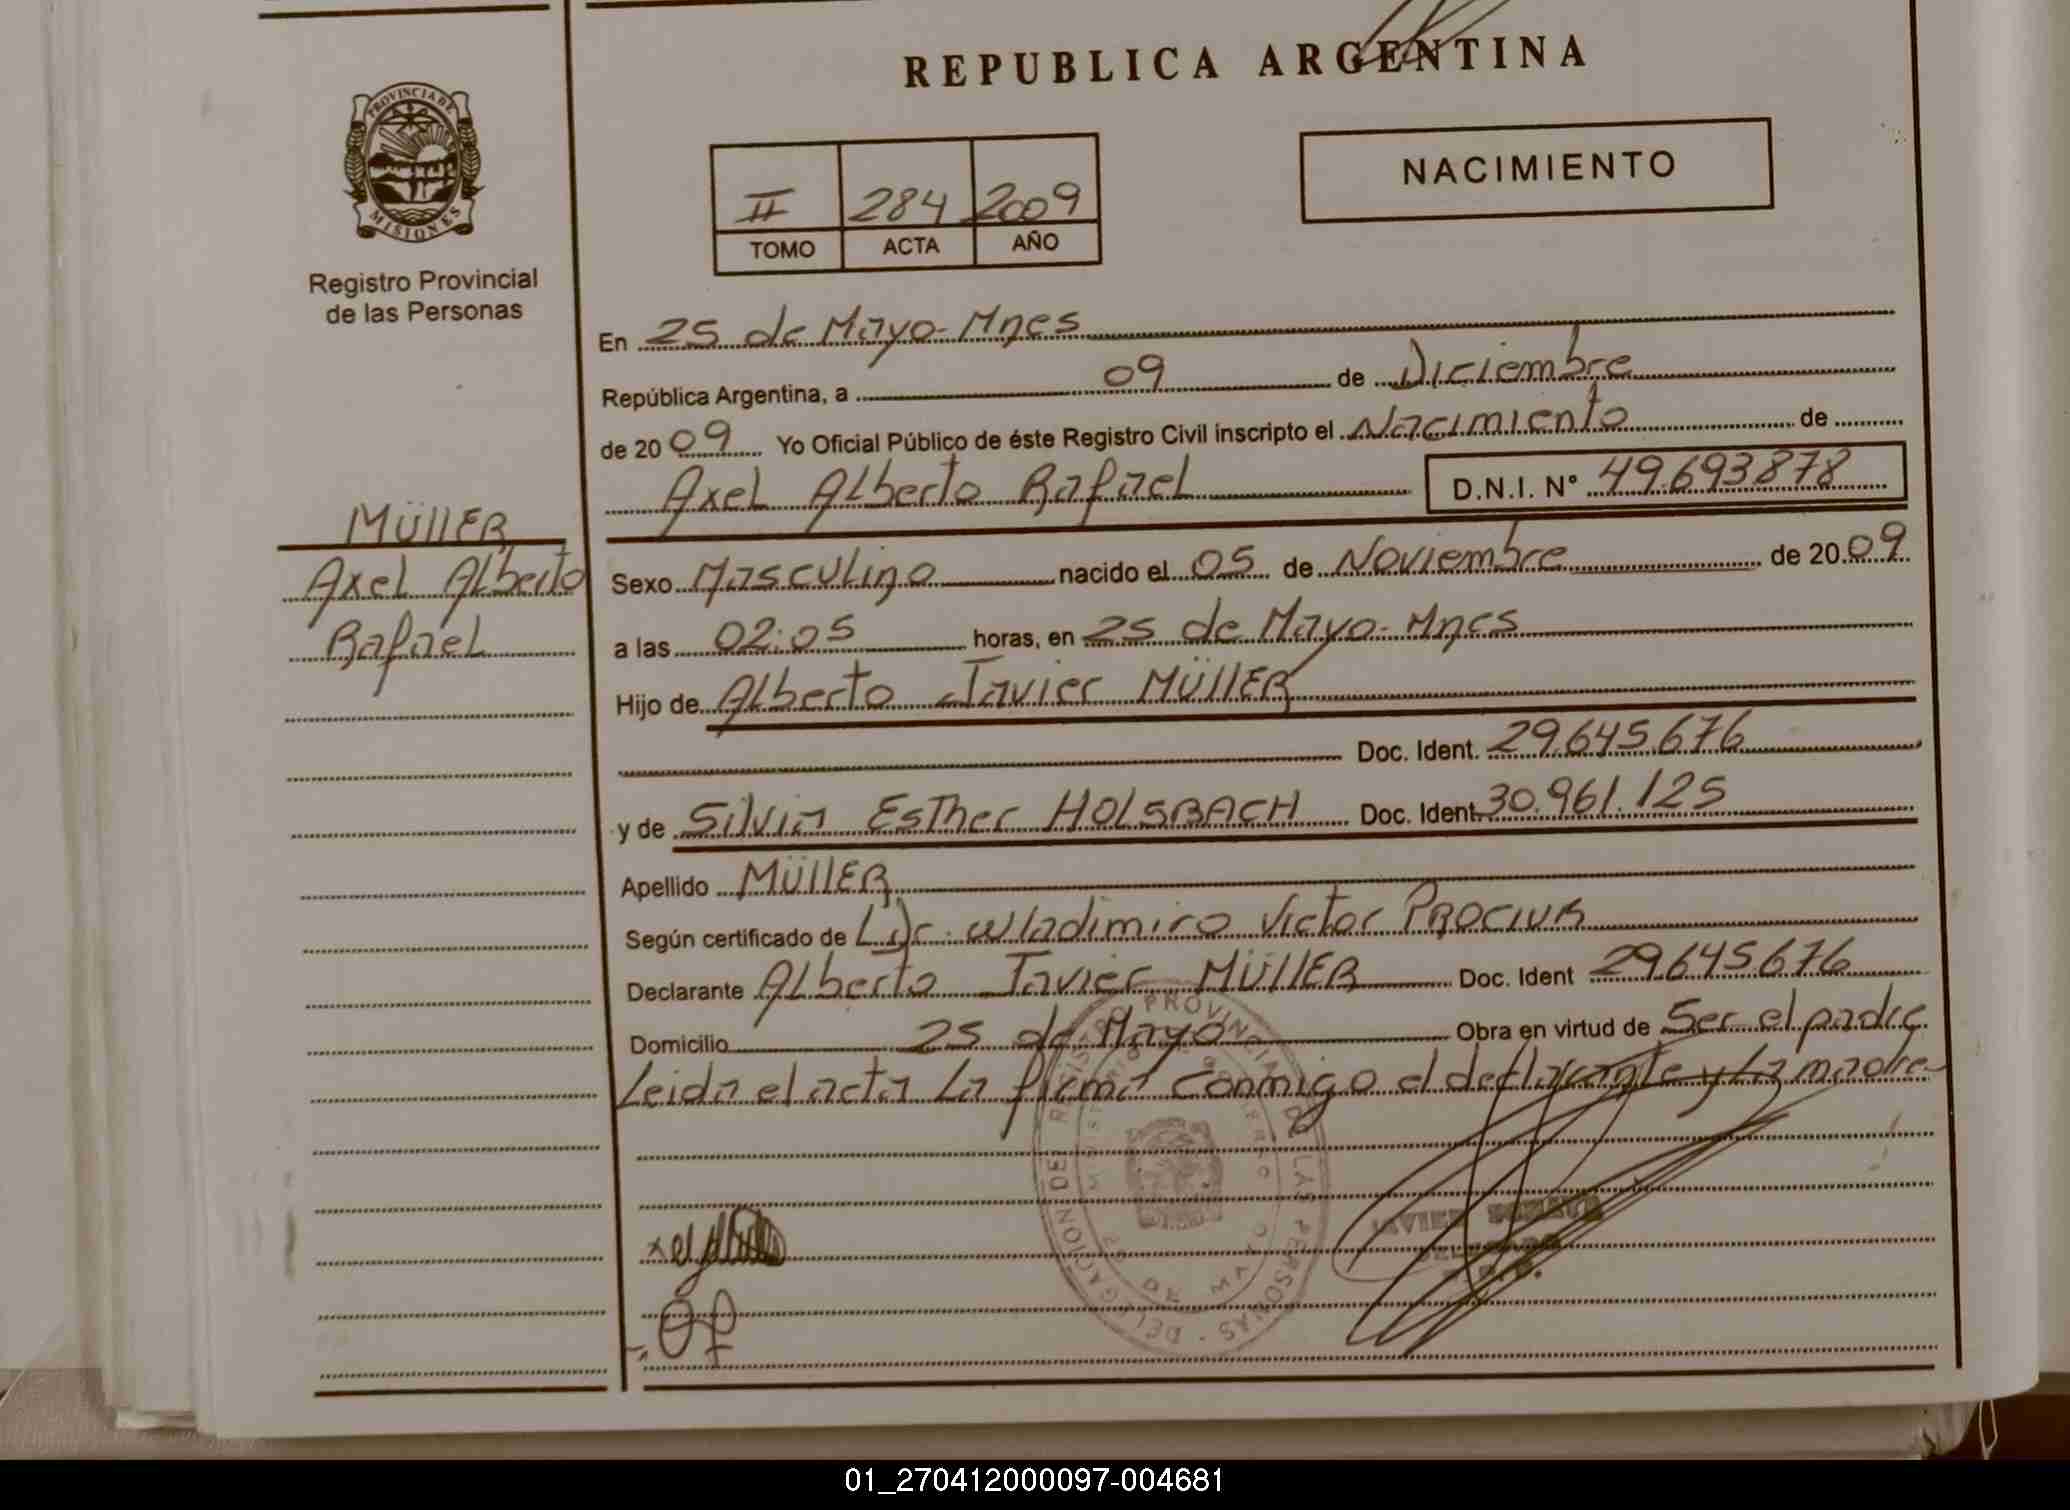 REPUBLICA ARGENTINA
PROVINCIA DE
MISIONES
Registro Provincial
de las Personas
NACIMIENTO
II 284 2009
TOMO ACTA AÑO
En 25 de Mayo-Mnes
República Argentina, a 09 de Diciembre
de 2009 Yo Oficial Público de éste Registro Civil inscripto el Nacimiento de
Axel Alberto Rafael D.N.I. N° 49.693878
MÜllER
Axel Alberto
Rafael
Sexo Masculino nacido el 05 de Noviembre de 2009
a las 02:05 horas, en 25 de Mayo-Mnes
Hijo de Alberto Javier MÜllER
Doc. Ident. 29.645.676
y de Silvia Esther HOLSBACH Doc. Ident. 30.961.125
Apellido MÜllER
Según certificado de Dr. Wladimiro Victor PROCIUK
Declarante Alberto Javier MÜllER Doc. Ident 29.645676
Domicilio 25 de Mayo Obra en virtud de Ser el padre
Leida el acta La firma conmigo el declarante y La madre
DELEGACION DEL REGISTRO PROVINCIAL DE LAS PERSONAS
JAVIER
01_270412000097-004681